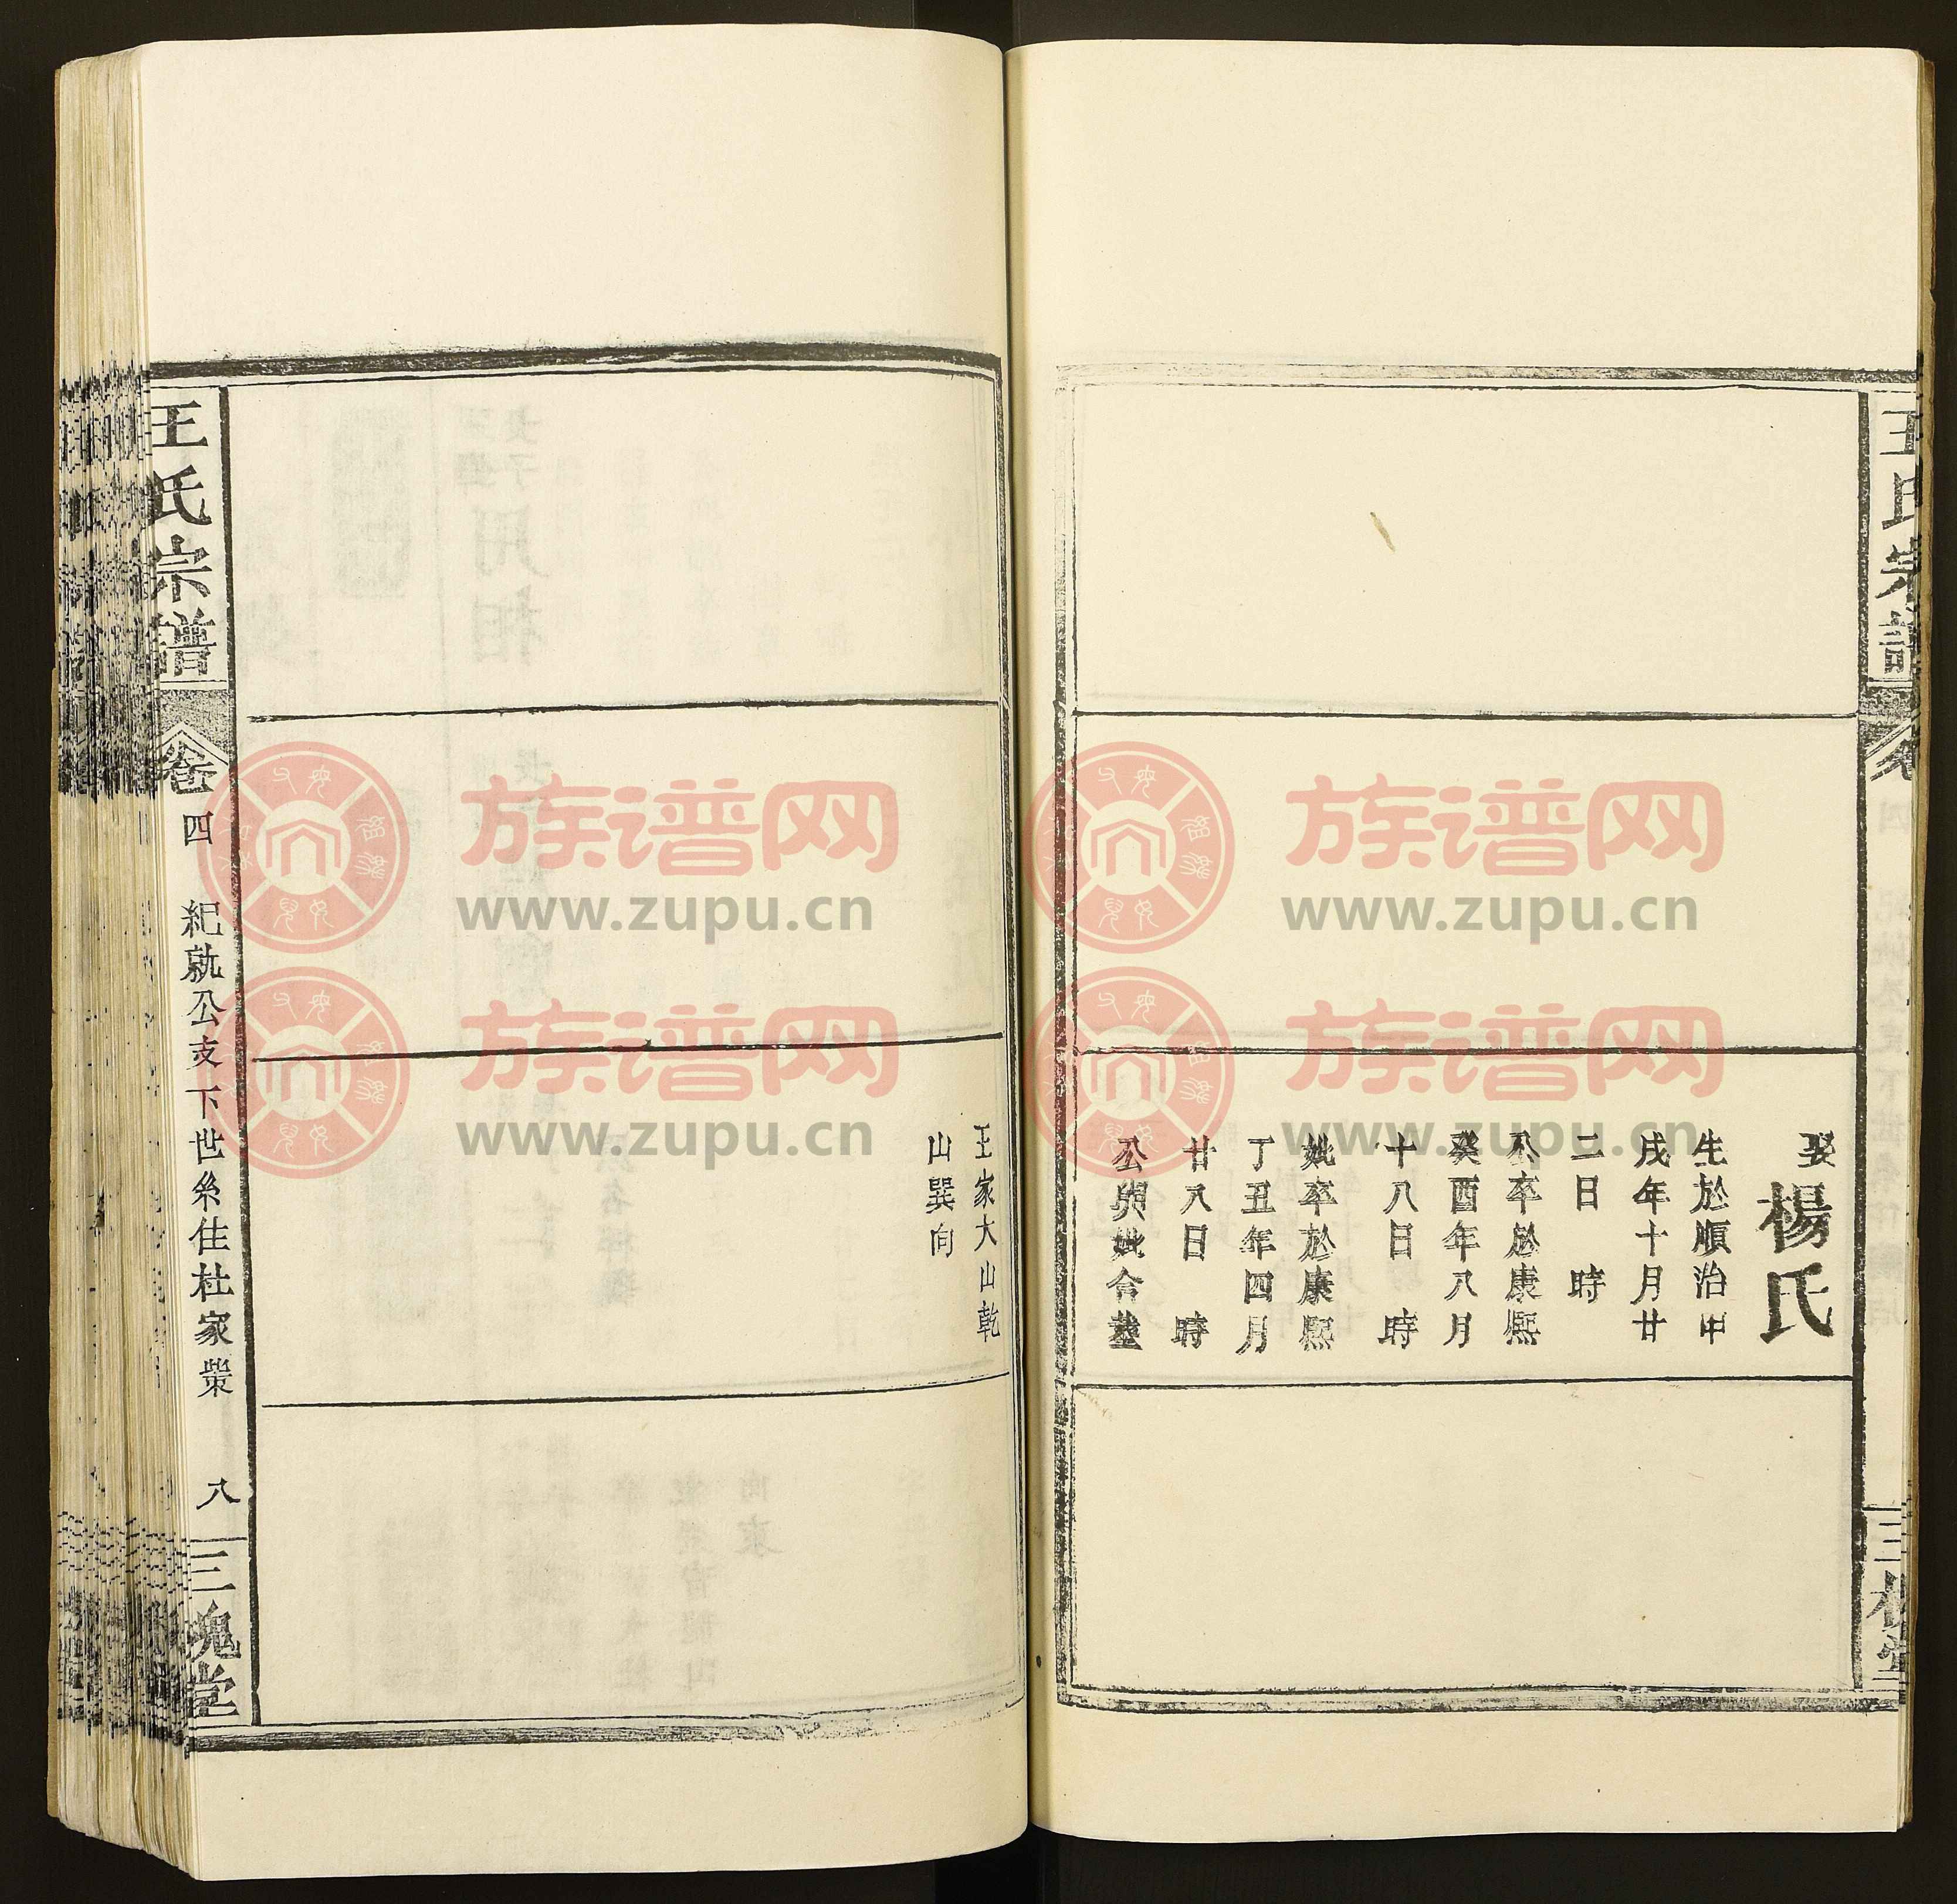 娶楊氏
生於順治甲
戌年十月廿
二日 時
公卒於康熙
癸酉年八月
十八日 時
妣卒於康熙
丁丑年四月
廿八日 時
公與妣合墓
王家大山乾
山巽向
王氏宗譜
卷四
紀就公支下世系住杜家
八
三槐堂
族谱网
www.zupu.cn
族谱网
www.zupu.cn
族谱网
www.zupu.cn
族谱网
www.zupu.cn